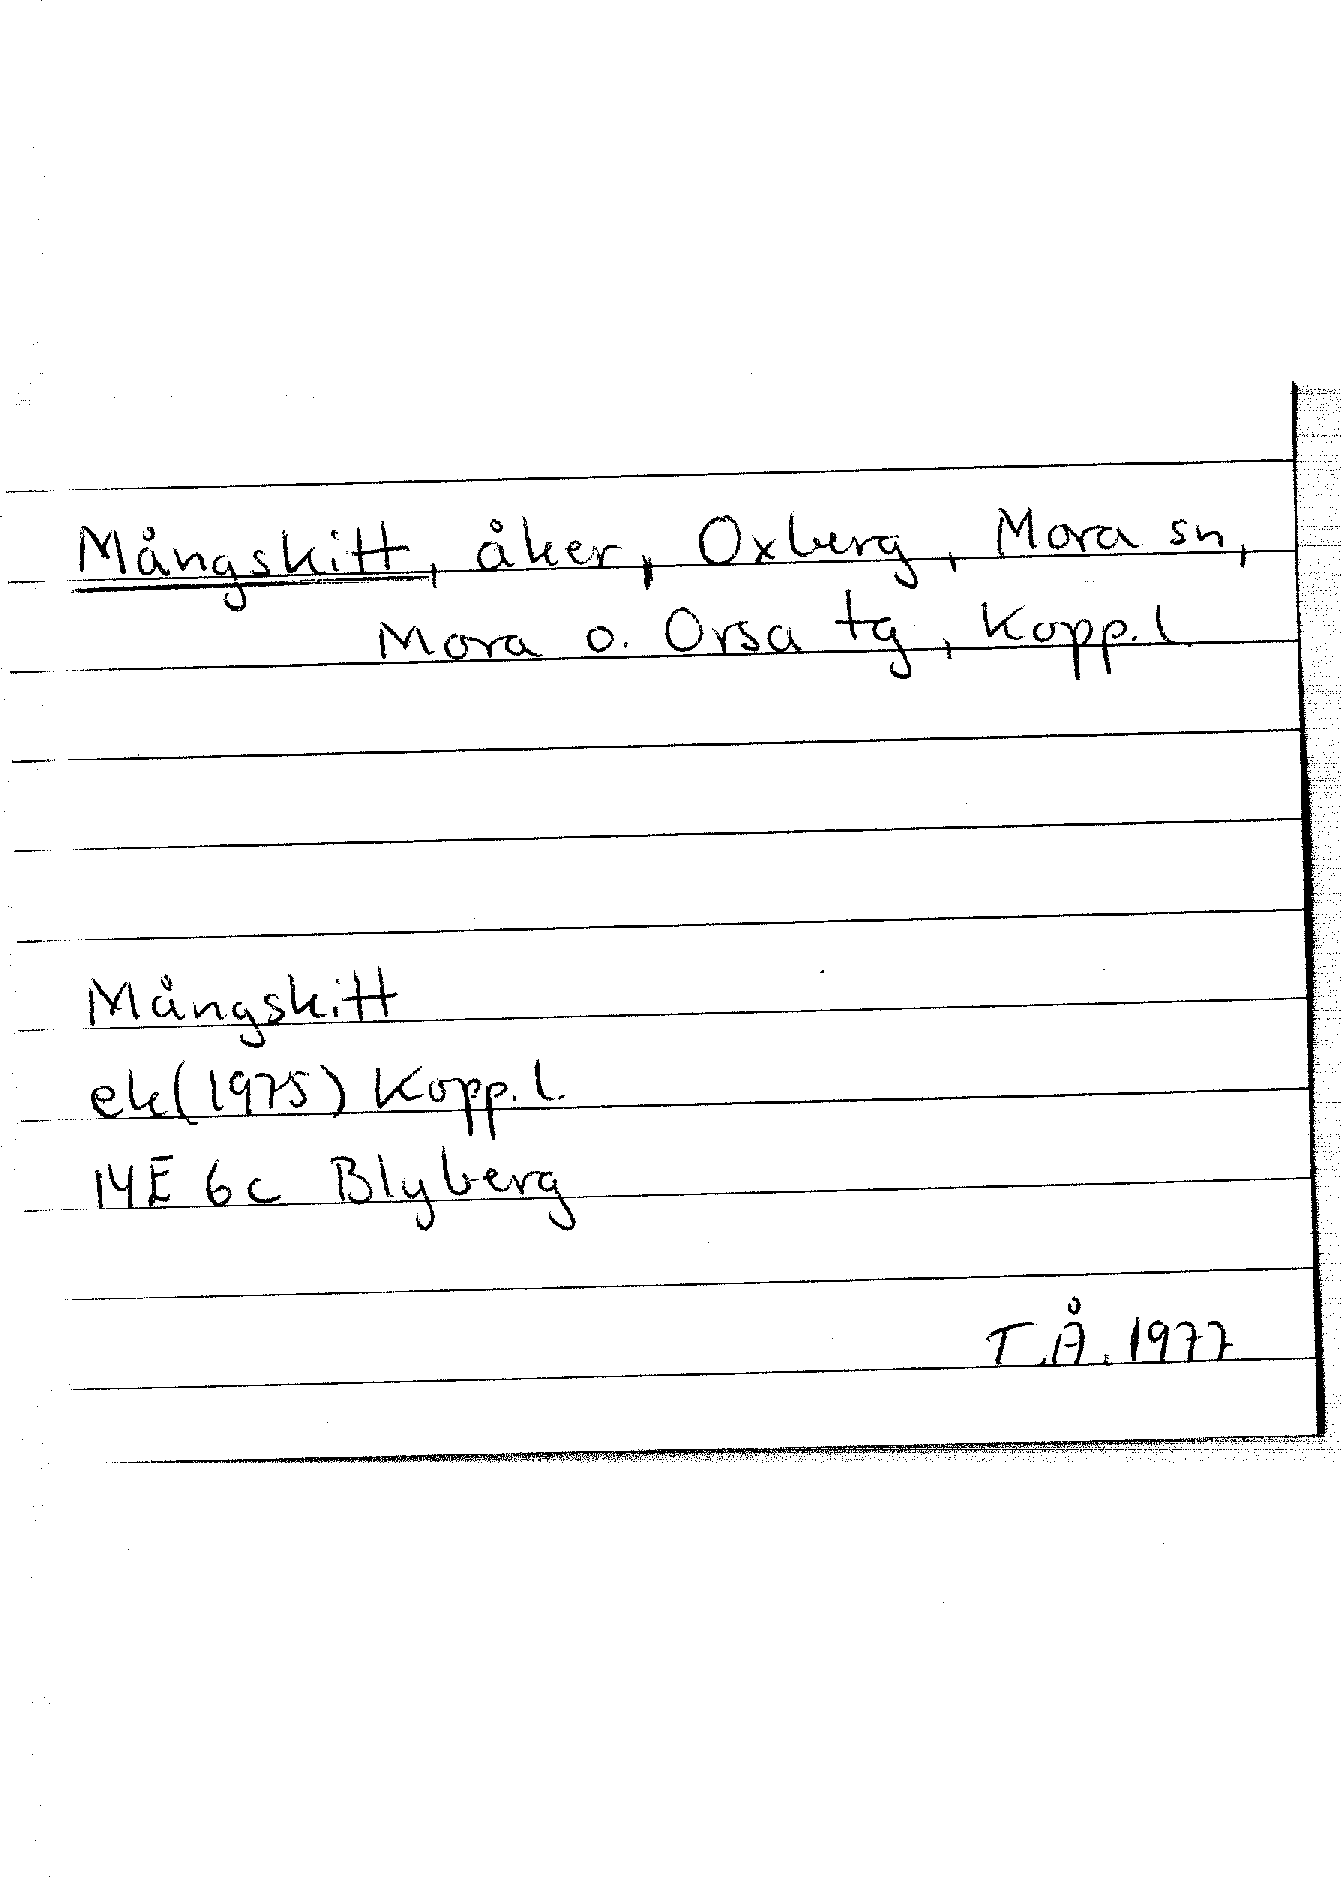 Mångskitt, åker, Oxberg, Mora sn,
Mora o. Orsa tg, Kopp. l
Mångskitt
ek(1975) Kopp. l.
14E 6c Blyberg
T.Å. 1977